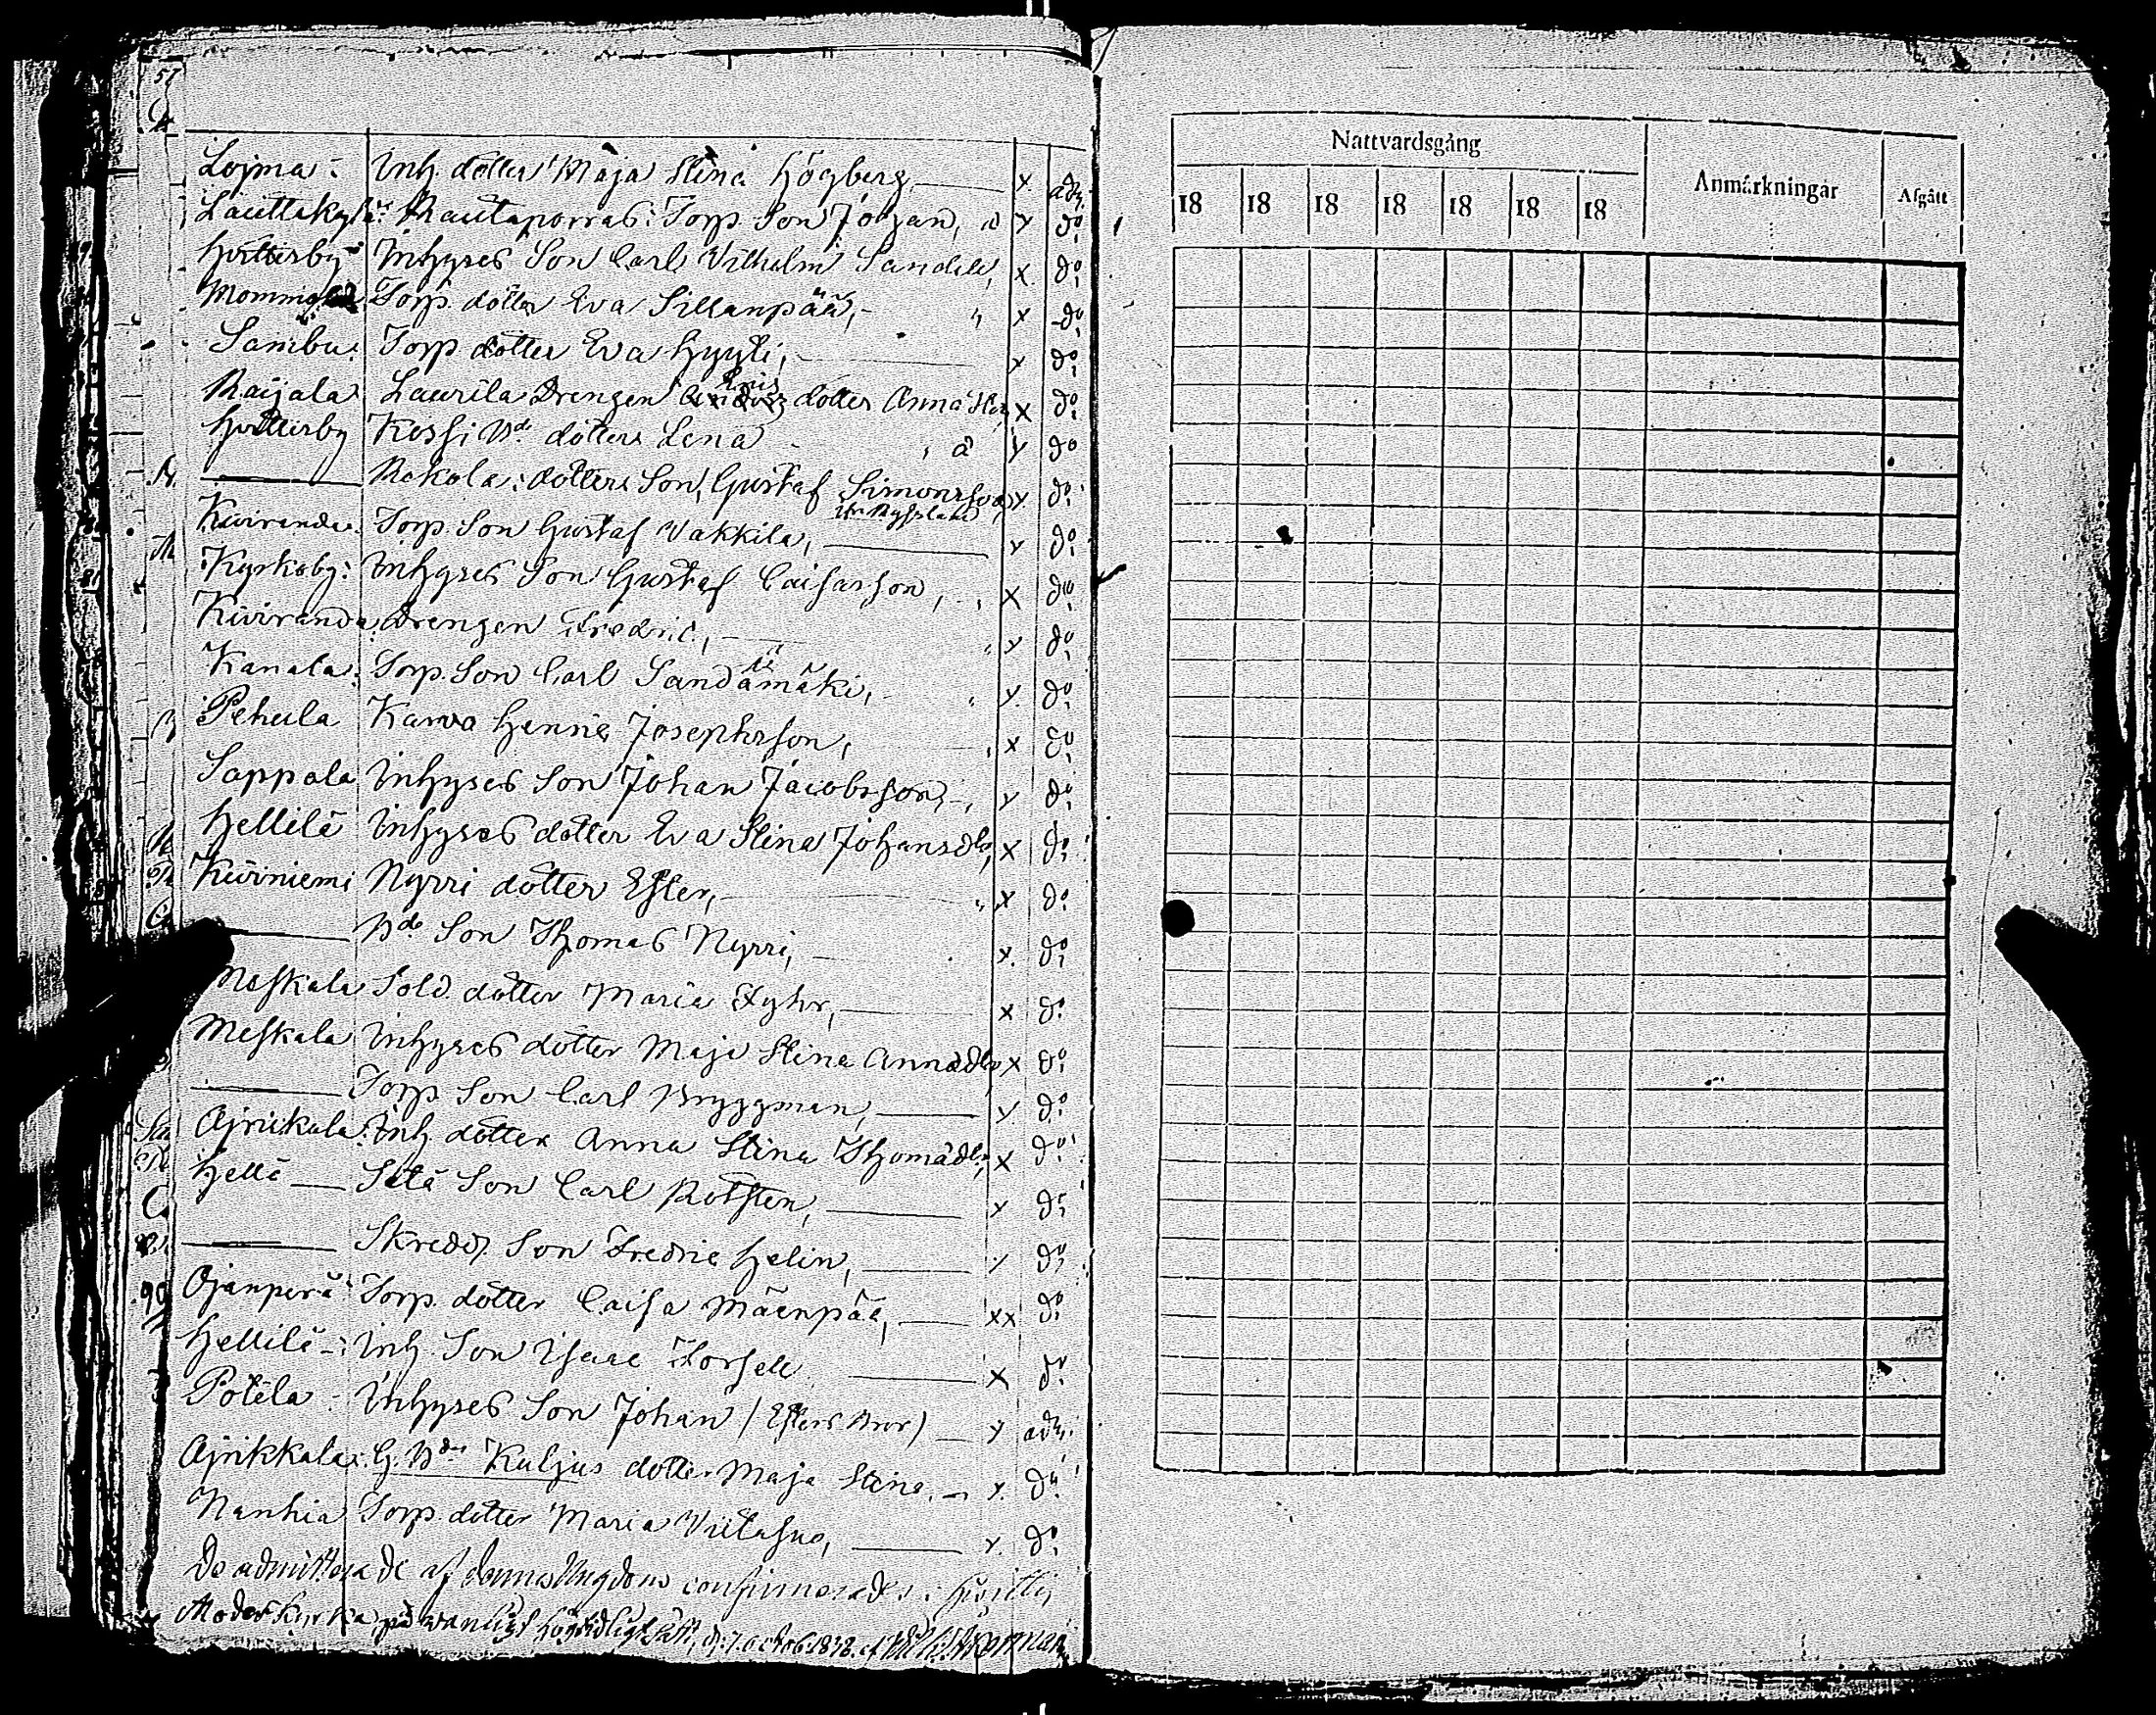 Lojma: Inh. dotter Maja Stina Högberg x adm.
Lauttakylä: Rautaporras: Torp. Son Johan, d y do
Hvitterby Inhyses Son Carl Vilhelm Sandell, x. do
Torp. dotter Eva Sillanpää, x do
Sambu: Torp dotter Eva Hyyti, x do
Raijala Laurila Drengen dotter Anna x do
Hvitterby Kossi Bd. dotter Lena y do
Rekola: dotters Son, Gustaf Simonsson y. do
Kiviranda: Torp. Son Gustaf Vakkila, y do
Kyrkoby: Inhyses Son Gustaf Caisasson, x do
Kiviranda: Drengen Fredric, y do
Kanala: Torp. Son Carl Sandamäki, y. do
Pehula Karvo Henric Josephsson, x do
Sappala Inhyses Son Johan Jacobsson, y do
Hellilä Inhyses dotter Eva Stina Johansdr, x do
Kiviniemi Nyrri dotter Ester, x do
Bde Son Thomas Nyrri, x. do
Meskala Sold. dotter Maria Fyhr, x do
Meskala Inhyses dotter Maja Stina Annædr x do
Torp Son Carl Bryggman, y do
Ajrikala: Inh. dotter Anna Stina Thomædr, x do
Hellä Son Carl Rotsten, x do
Skredd. Son Fredric Helin, y do
Ojanperä: Torp. dotter Caisa Mäenpää, xx do
Hellilä: Inh. Son Isaac Forsell x do
Potila: Inhyses Son Johan / Esters Bror) y adm.
Ajrikkala: G. Bde Kuljus dotter Maja Stina, y. do
Nanhia Torp. dotter Maria Viitasuo, y. do
De admitterade af denna Ungdom confirmerades i Hvittis
Moderkyrka, på vanligt högtidligt sätt, d. 7. octob. 1838. af
Nattvardsgång Anmärkningar Afgått
18 18 18 18 18 18 18